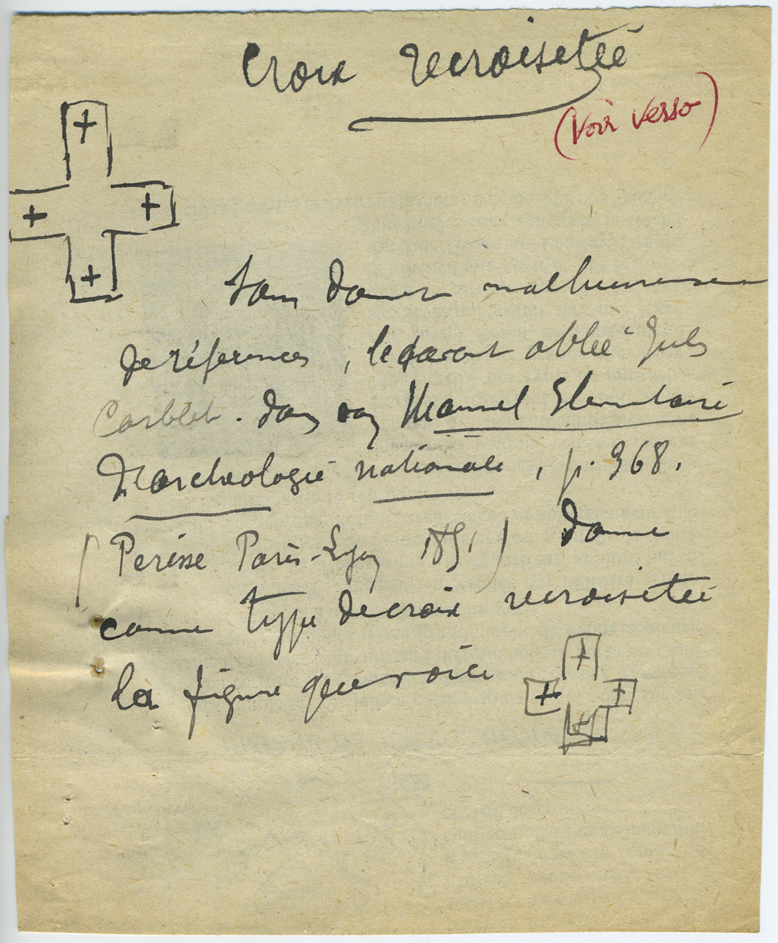 Croix recroisetée
(Voir verso)
Sans donner malheureusem
de références, le savant abbé Jules
Corblet. dans son Manuel Elementaire
D'archeologie nationale, p. 368.
(Perisse Paris-Lyon 1851) donne
comme type de croix recroisetée
la figure que voici